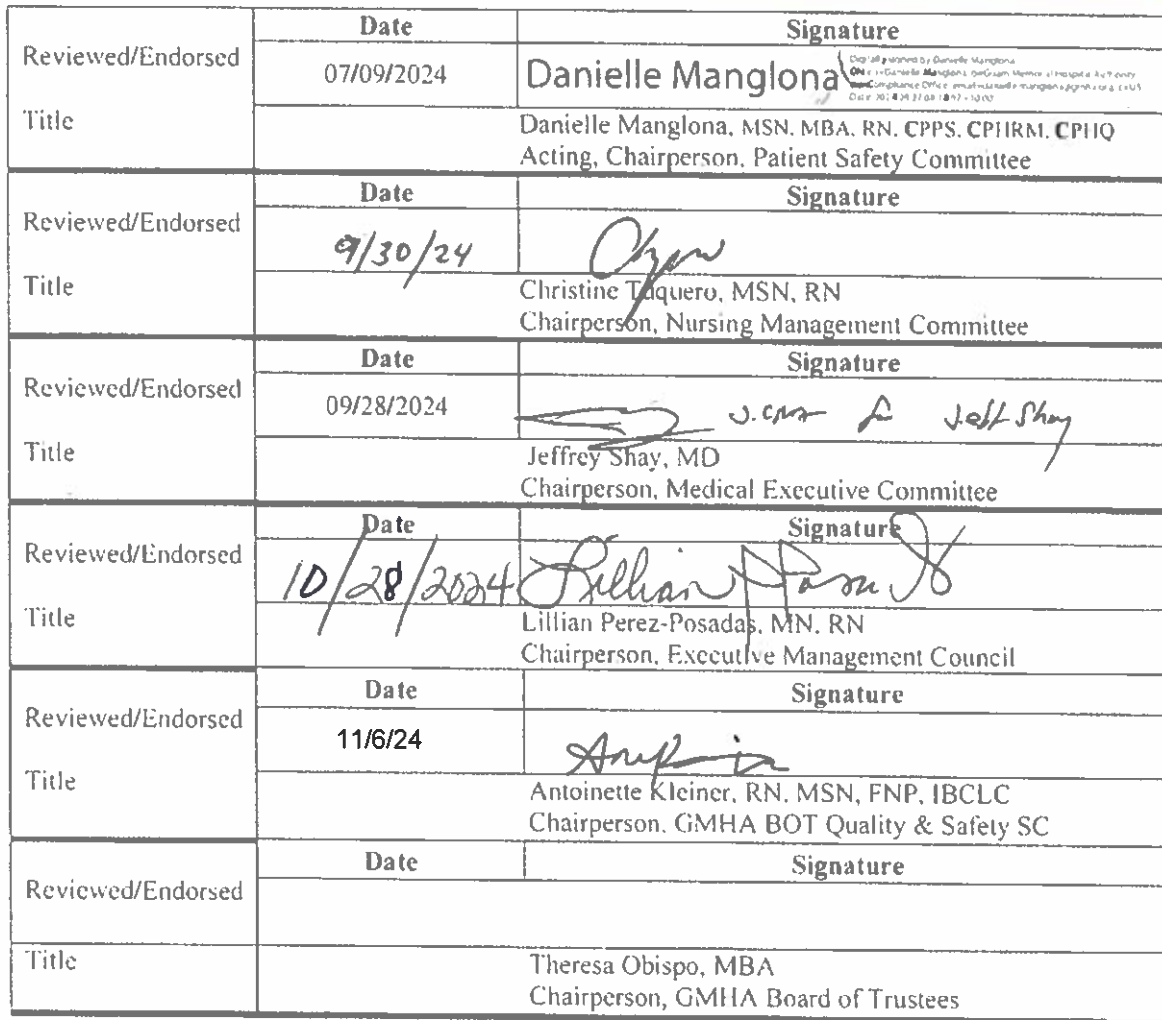 Date Signature
Reviewed/Endorsed
07/09/2024 Danielle Manglona Digitally signed by Danielle Manglona
Title
Danielle Manglona, MSN. MBA. RN. CPPS. CPHRM. CPHQ
Acting, Chairperson, Patient Safety Committee
Date Signature
Reviewed/Endorsed
9/30/24
Title
Christine Tuquero, MSN, RN
Chairperson, Nursing Management Committee
Date Signature
Reviewed/Endorsed
09/28/2024 Jeff Shay
Title
Jeffrey Shay, MD
Chairperson, Medical Executive Committee
Date Signature
Reviewed/Endorsed
10/28/2024 Lillian
Title
Lillian Perez-Posadas, MN. RN
Chairperson, Executive Management Council
Date Signature
Reviewed/Endorsed
11/6/24
Title
Antoinette Kleiner, RN. MSN, FNP, IBCLC
Chairperson. GMHA BOT Quality & Safety SC
Date Signature
Reviewed/Endorsed
Title
Theresa Obispo, MBA
Chairperson, GMHA Board of Trustees